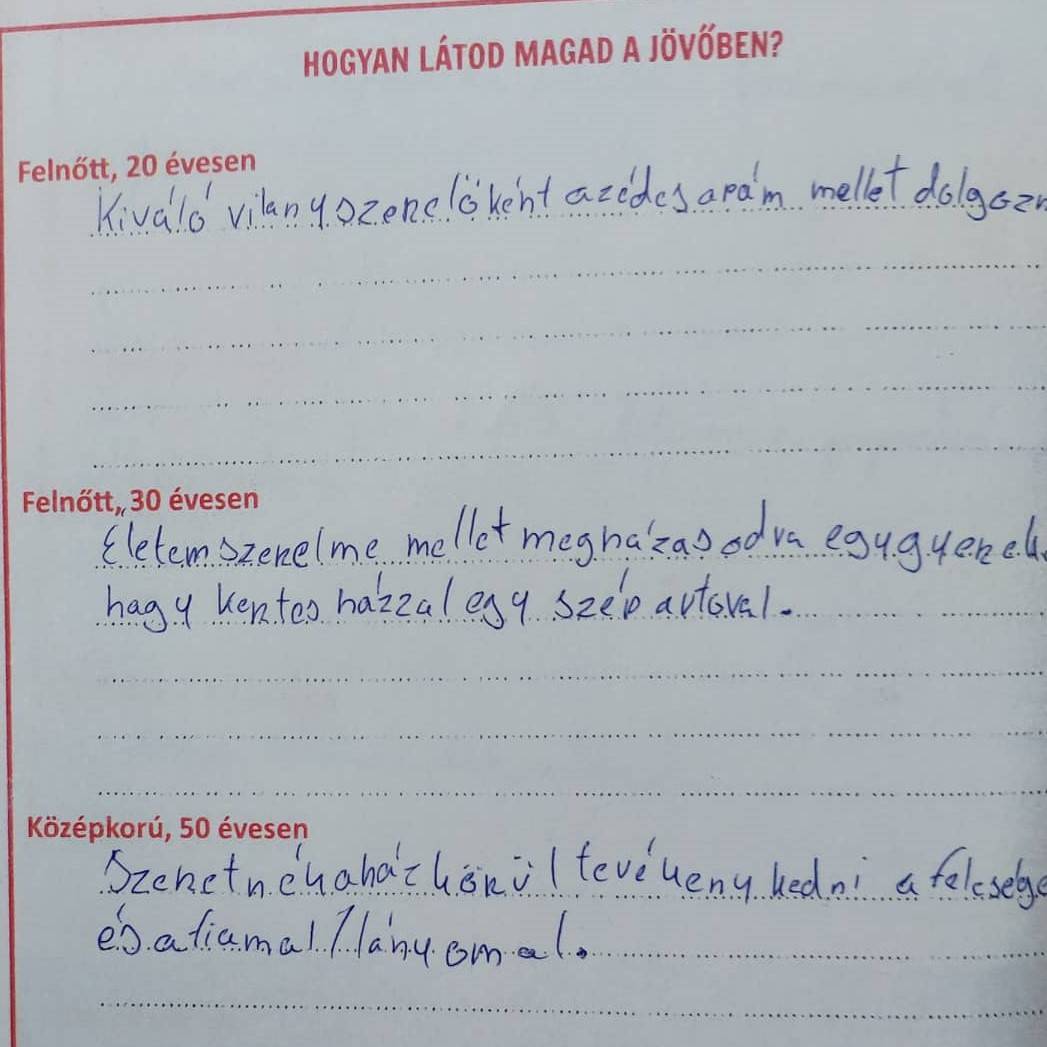 HOGYAN LÁTOD MAGAD A JÖVŐBEN?
Felnőtt, 20 évesen
Kiváló vilanyszerelőként azédesapám mellet dolgozn
Felnőtt, 30 évesen
Életem szerelme mellet megházasodva egy gyerek
hagy kertes házzal egy szép autóval.
Középkorú, 50 évesen
Szeretnék a ház körül tevékenykedni a felesége
és a fiamal/lányomal.